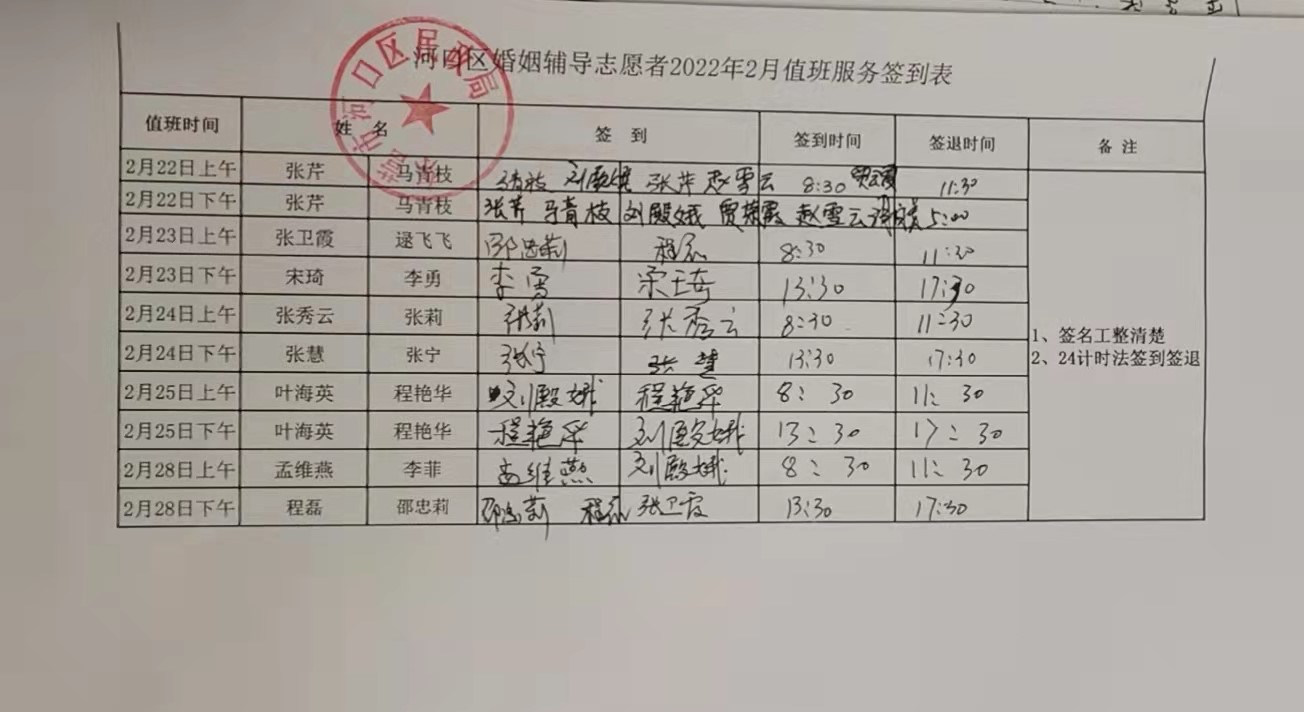 河口区婚姻辅导志愿者2022年2月值班服务签到表
值班时间 姓 名 签 到 签到时间 签退时间 备 注
2月22日上午 张芹 马青枝 青枝 刘殿娥 张芹 赵雪云 8:30 11:30
2月22日下午 张芹 马青枝 张芹 马青枝 刘殿娥 贾荣霞 赵雪云 5:00
2月23日上午 张卫霞 逯飞飞 邵忠莉 程磊 8:30 11:30
2月23日下午 宋琦 李勇 李勇 宋琦 13:30 17:30
2月24日上午 张秀云 张莉 张莉 张秀云 8:30 11:30
2月24日下午 张慧 张宁 张宁 张慧 13:30 17:30
2月25日上午 叶海英 程艳华 刘殿娥 程艳华 8:30 11:30
2月25日下午 叶海英 程艳华 程艳华 刘殿娥 13:30 17:30
2月28日上午 孟维燕 李菲 孟维燕 刘殿娥 8:30 11:30
2月28日下午 程磊 邵忠莉 邵忠莉 程磊 张卫霞 13:30 17:30
1、签名工整清楚
2、24计时法签到签退
东营市河口区民政局